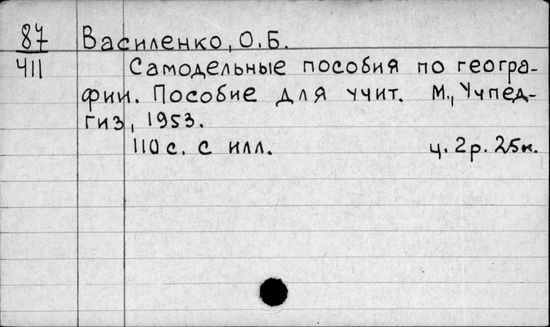 87 Василенко, О.Б.
411 Самодельные пособия по геогра-
фии. Пособие для учит. М., Учпед-
гиз, 1953.
110 с. с илл. ц. 2р. 25к.